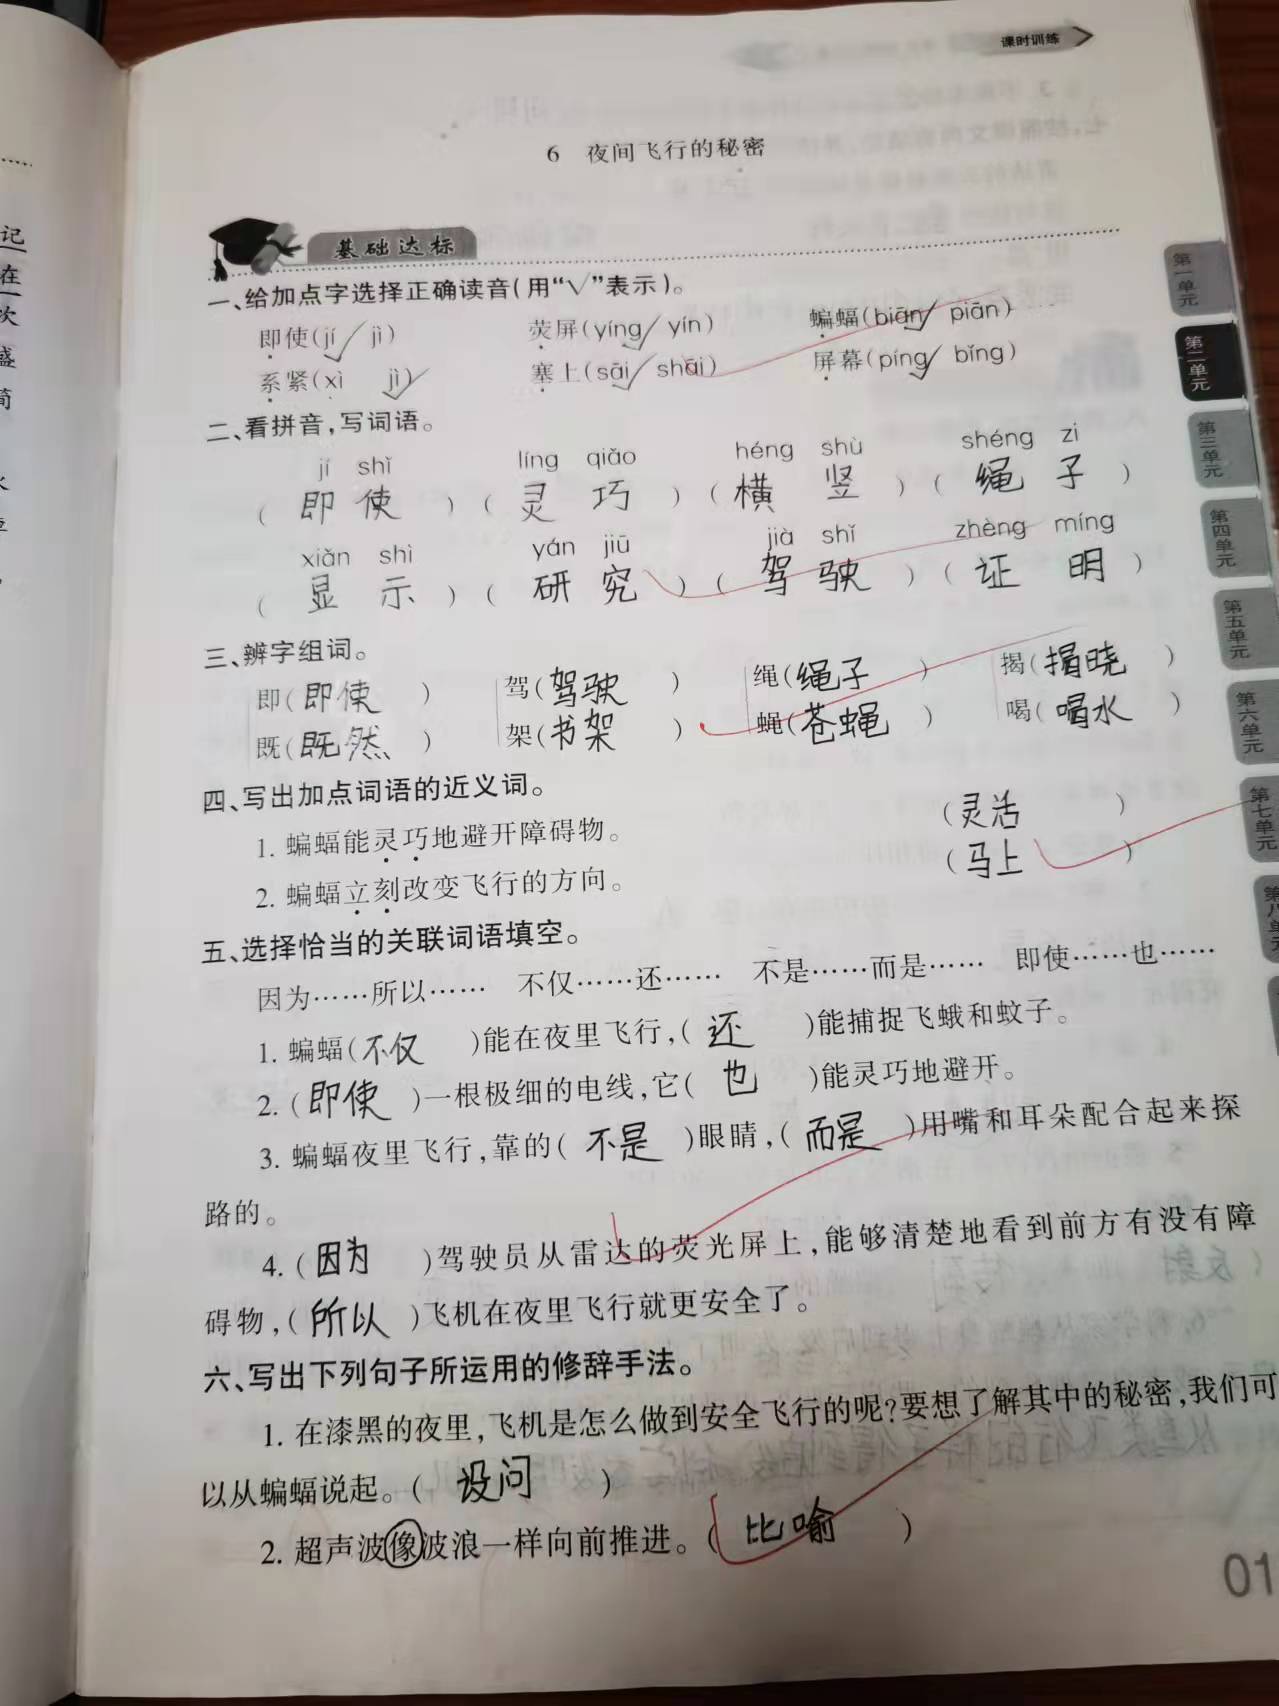 课时训练
6 夜间飞行的秘密
基础达标
一、给加点字选择正确读音(用“√”表示)。
即使(jí√ jì) 荧屏(yíng√ yín) 蝙蝠(biān√ piān)
系紧(xì jì√) 塞上(sāi√ shāi) 屏幕(píng√ bǐng)
二、看拼音,写词语。
jí shǐ líng qiǎo héng shù shéng zi
(即使)(灵巧)(横竖)(绳子)
xiǎn shì yán jiū jià shǐ zhèng míng
(显示)(研究)(驾驶)(证明)
三、辨字组词。
即(即使) 驾(驾驶) 绳(绳子) 揭(揭晓)
既(既然) 架(书架) 蝇(苍蝇) 喝(喝水)
四、写出加点词语的近义词。
1. 蝙蝠能灵巧地避开障碍物。 (灵活)
2. 蝙蝠立刻改变飞行的方向。 (马上)
五、选择恰当的关联词语填空。
因为……所以…… 不仅……还…… 不是……而是…… 即使……也……
1. 蝙蝠(不仅)能在夜里飞行,(还)能捕捉飞蛾和蚊子。
2. (即使)一根极细的电线,它(也)能灵巧地避开。
3. 蝙蝠夜里飞行,靠的(不是)眼睛,(而是)用嘴和耳朵配合起来探
路的。
4. (因为)驾驶员从雷达的荧光屏上,能够清楚地看到前方有没有障
碍物,(所以)飞机在夜里飞行就更安全了。
六、写出下列句子所运用的修辞手法。
1. 在漆黑的夜里,飞机是怎么做到安全飞行的呢?要想了解其中的秘密,我们可
以从蝙蝠说起。(设问)
2. 超声波像波浪一样向前推进。(比喻)
第一单元
第二单元
第三单元
第四单元
第五单元
第六单元
第七单元
第八单元
01
记
在
次
盛
简